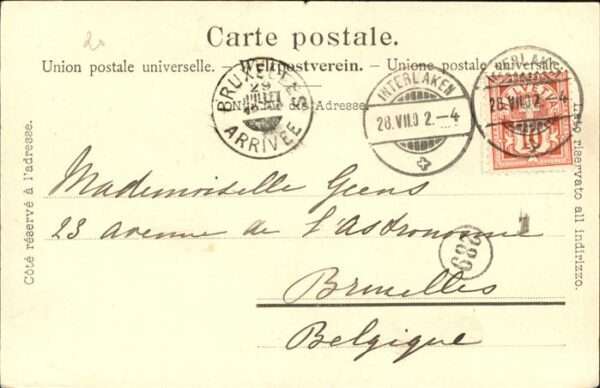 2
Carte postale.
Union postale universelle. — Weltpostverein. — Unione postale universale.
Nur für die Adresse.
BRUXELLES
29
JUILLET
ARRIVÉE
INTERLAKEN
28.VII.02.–4
INTERLAKEN
28.VII.02.
HELVETIA
10
Côté réservé à l'adresse.
Lato riservato all indirizzo.
Mademoiselle Geens
23 avenue de l'Astronomie
1
289
Bruxelles
Belgique